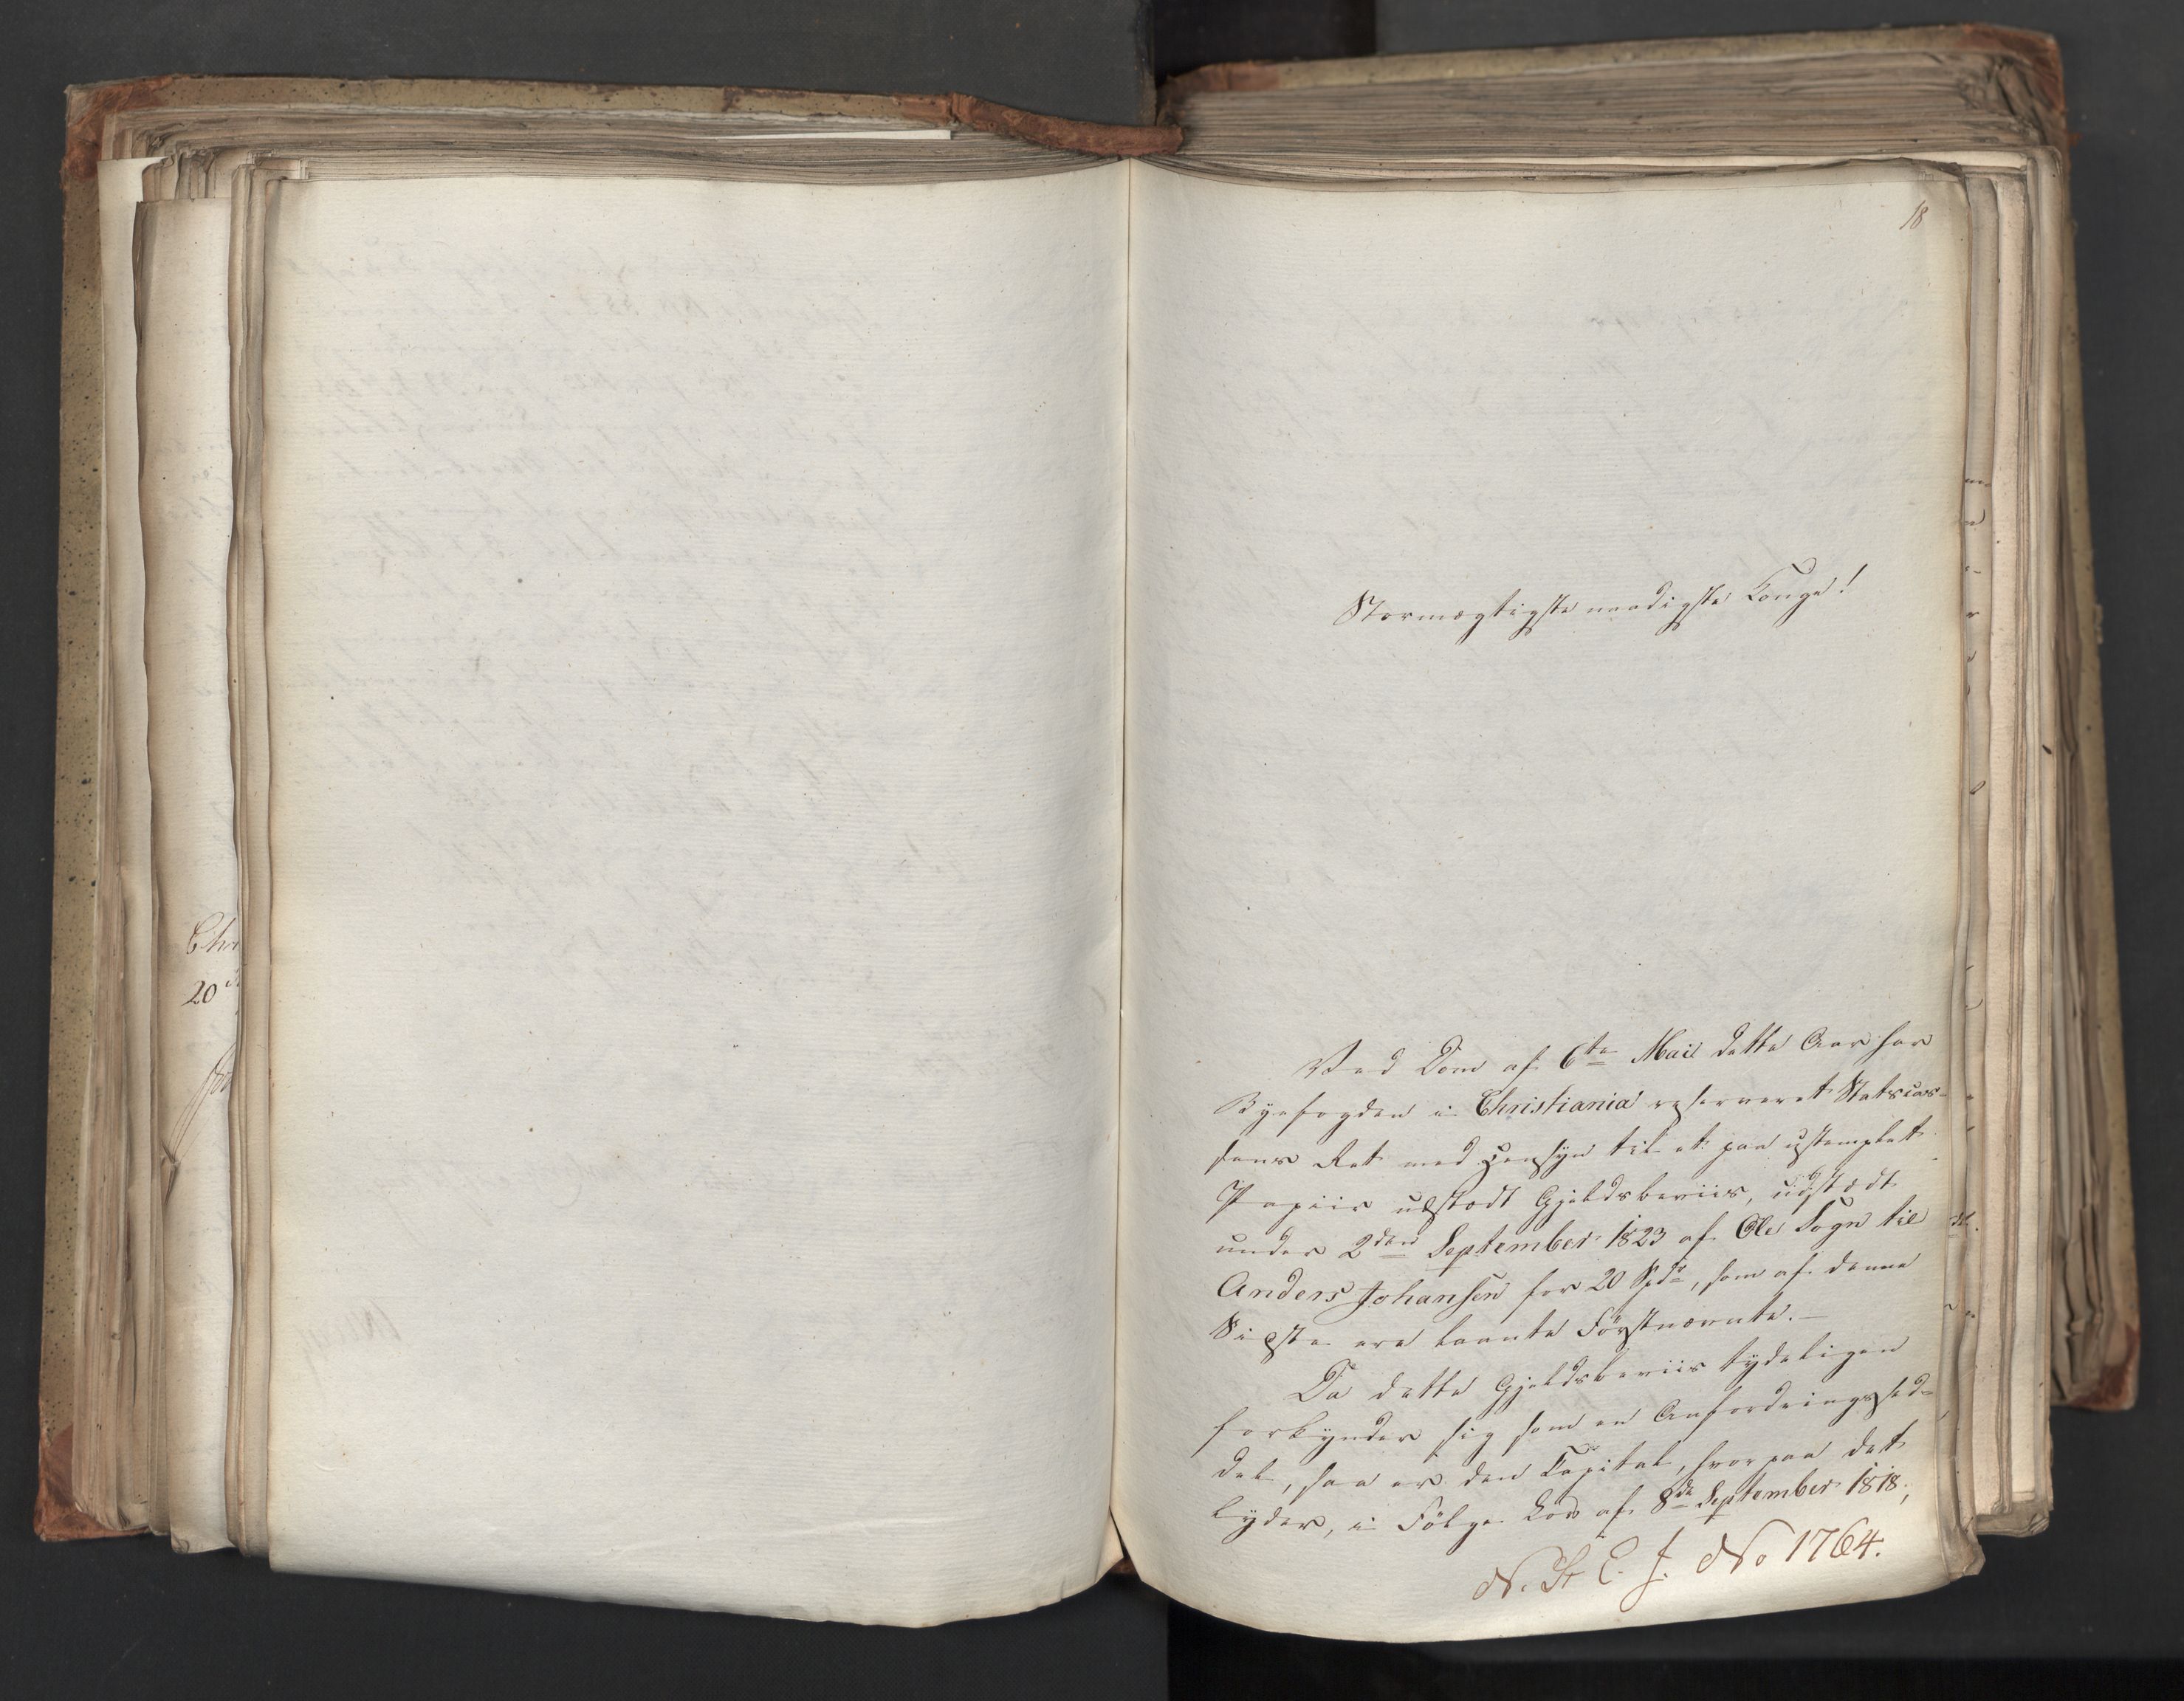 18
Stormægtigste naadigste Konge!
Ved Dom af 6te Maii dette Aar har
Byefogden i Christiania reserveret Statscas-
sens Ret med Hensyn til et paa ustemplet
Papiir udstædt Gjeldsbeviis, udstædt
under 2den September 1823 af Ole Sogn til
Anders Johansen for 20 Spdr, som af denne
Sidste ere laante Førstnævnte.-
Da dette Gjeldsbeviis tydeligen
forkynder sig som en Anfordringssed-
del, saa er den Capital, hvorpaa det
lyder, i Følge Lov af 8de September 1818,
N. St E. J. No 1764.
Chri
20